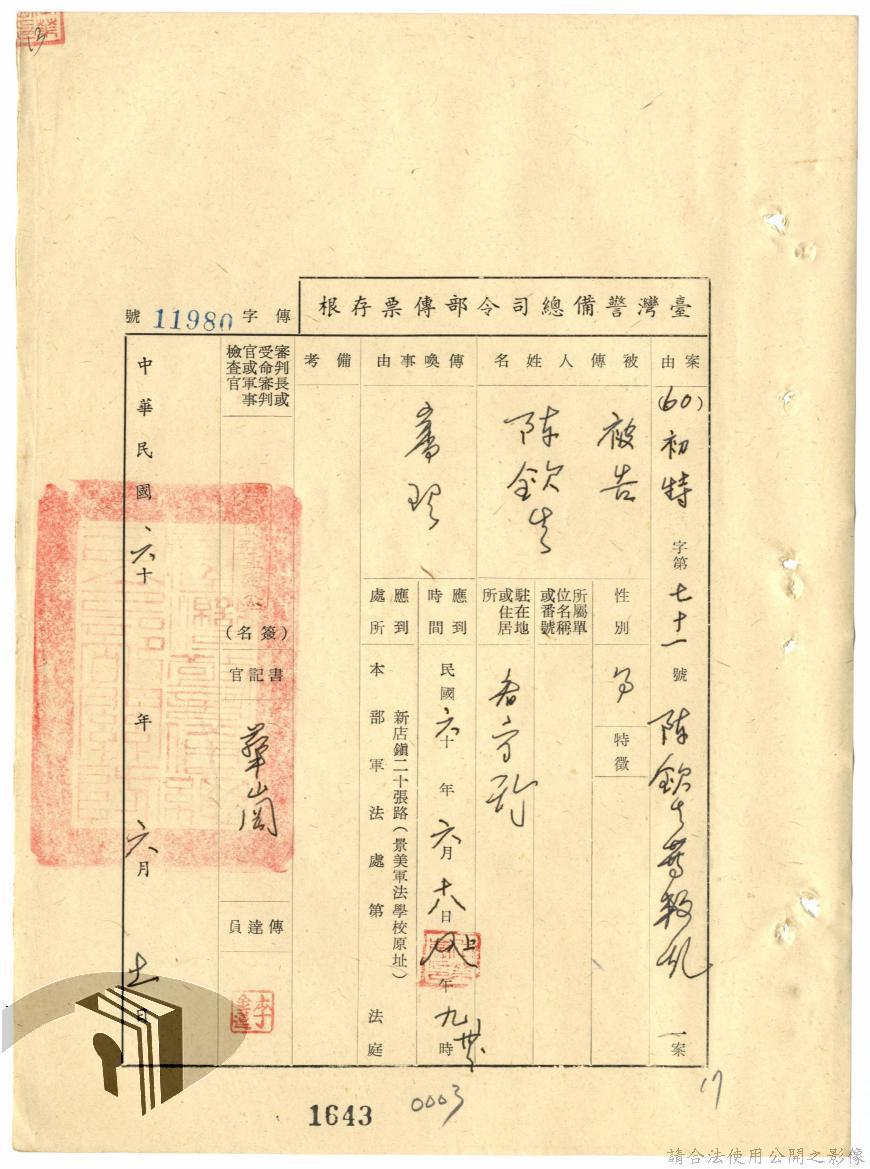 臺灣警備總司令部傳票存根
傳字 11980 號
案由
(60)初特字第七十一號陳欽生等叛亂一案
被傳人姓名
被告
陳欽生
性別
男
特徵
所屬單位名稱或番號
駐在地或住居所
看守所
傳喚事由
審理
應到時間
民國六十年六月十八日上午九時
應到處所
新店鎮二十張路(景美軍法學校原址)
本部軍法處第 法庭
備考
審判長或受命審判官或軍事檢查官
(簽名)
書記官
傳達員
中華民國六十年六月十一日
1643
0003
17
請合法使用公開之影像